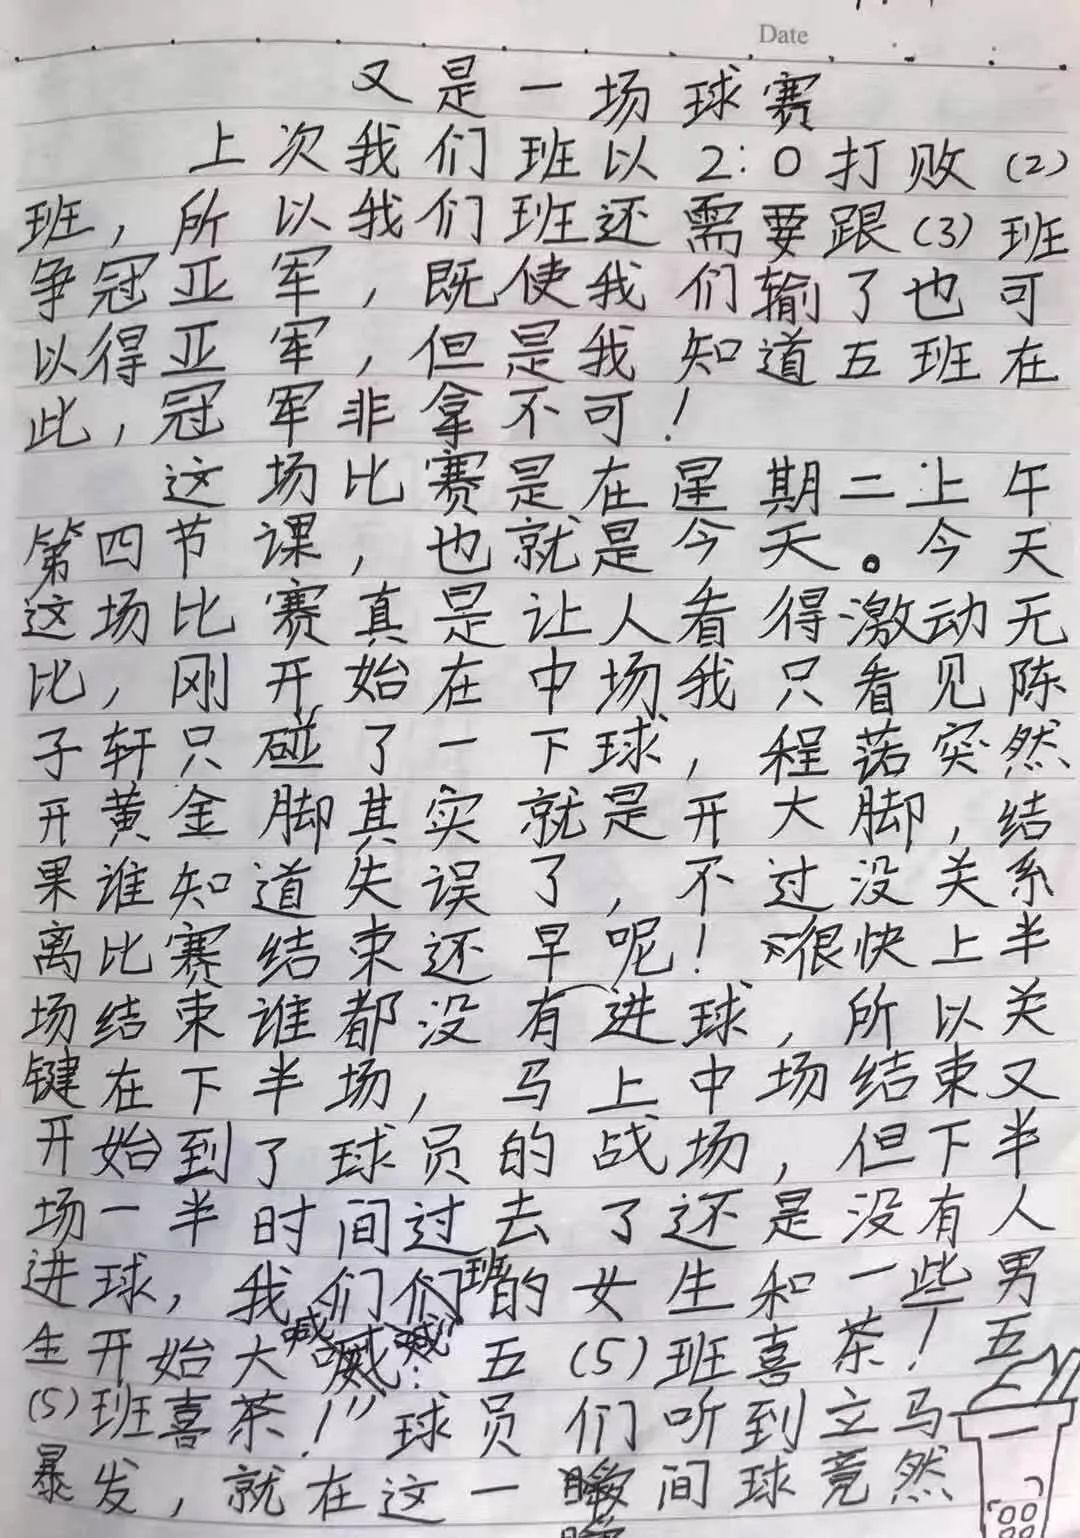 Date
又是一场球赛
上次我们班以2:0打败(2)
班,所以我们班还需要跟(3)班
争冠亚军,既使我们输了也可
以得亚军,但是我知道五班在
此,冠军非拿不可!
这场比赛是在星期二上午
第四节课,也就是今天。今天
这场比赛真是让人看得激动无
比,刚开始在中场我只看见陈
子轩只碰了一下球,程诺突然
开黄金脚其实就是开大脚,结
果谁知道失误了,不过没关系
离比赛结束还早呢!很快上半
场结束谁都没有进球,所以关
键在下半场,马上中场结束又
开始到了球员的战场,但下半
场一半时间过去了还是没有人
进球,我们班的女生和一些男
生开始大喊:五(5)班喜茶!五
(5)班喜茶!”球员们听到立马
暴发,就在这一瞬间球竟然